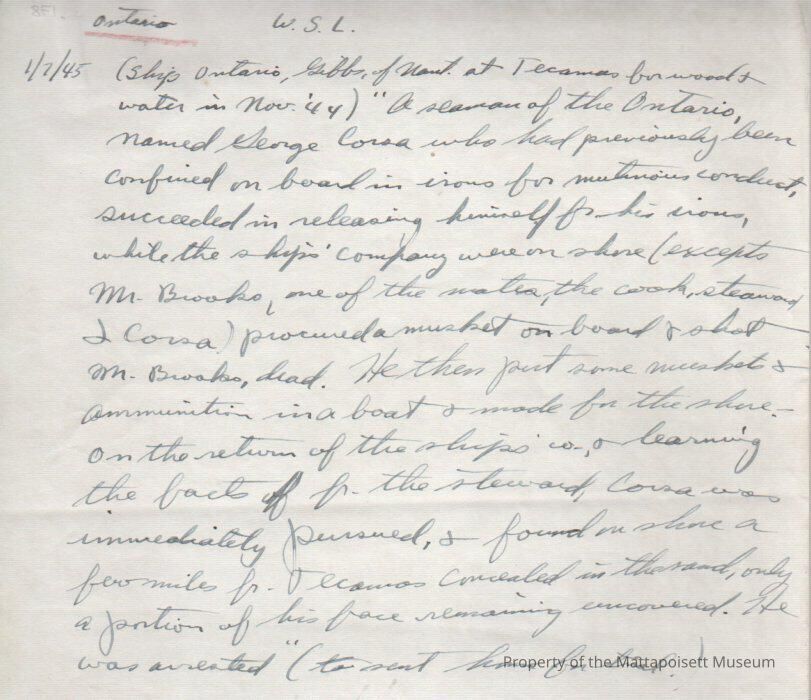 Ontario W.S.L.
1/7/45 (Ship Ontario, Gibbs, of Nant. at Tecamas for wood &
water in Nov. '44) "A seaman of the Ontario,
named George Corsa who had previously been
confined on board in irons for mutinous conduct,
succeeded in releasing himself fr. his irons,
while the ships' company were on shore (excepts
Mr. Brooks, one of the mates, the cook, steward
& Corsa) procured a musket on board & shot
Mr. Brooks, dead. He then put some muskets &
ammunition in a boat & made for the shore.-
On the return of the ships' co., & learning
the facts fr. the steward, Corsa was
immediately pursued, & found on shore a
few miles fr. Tecamas concealed in the sand, only
a portion of his face remaining uncovered. He
was arrested" (to sent home for
Property of the Mattapoisett Museum